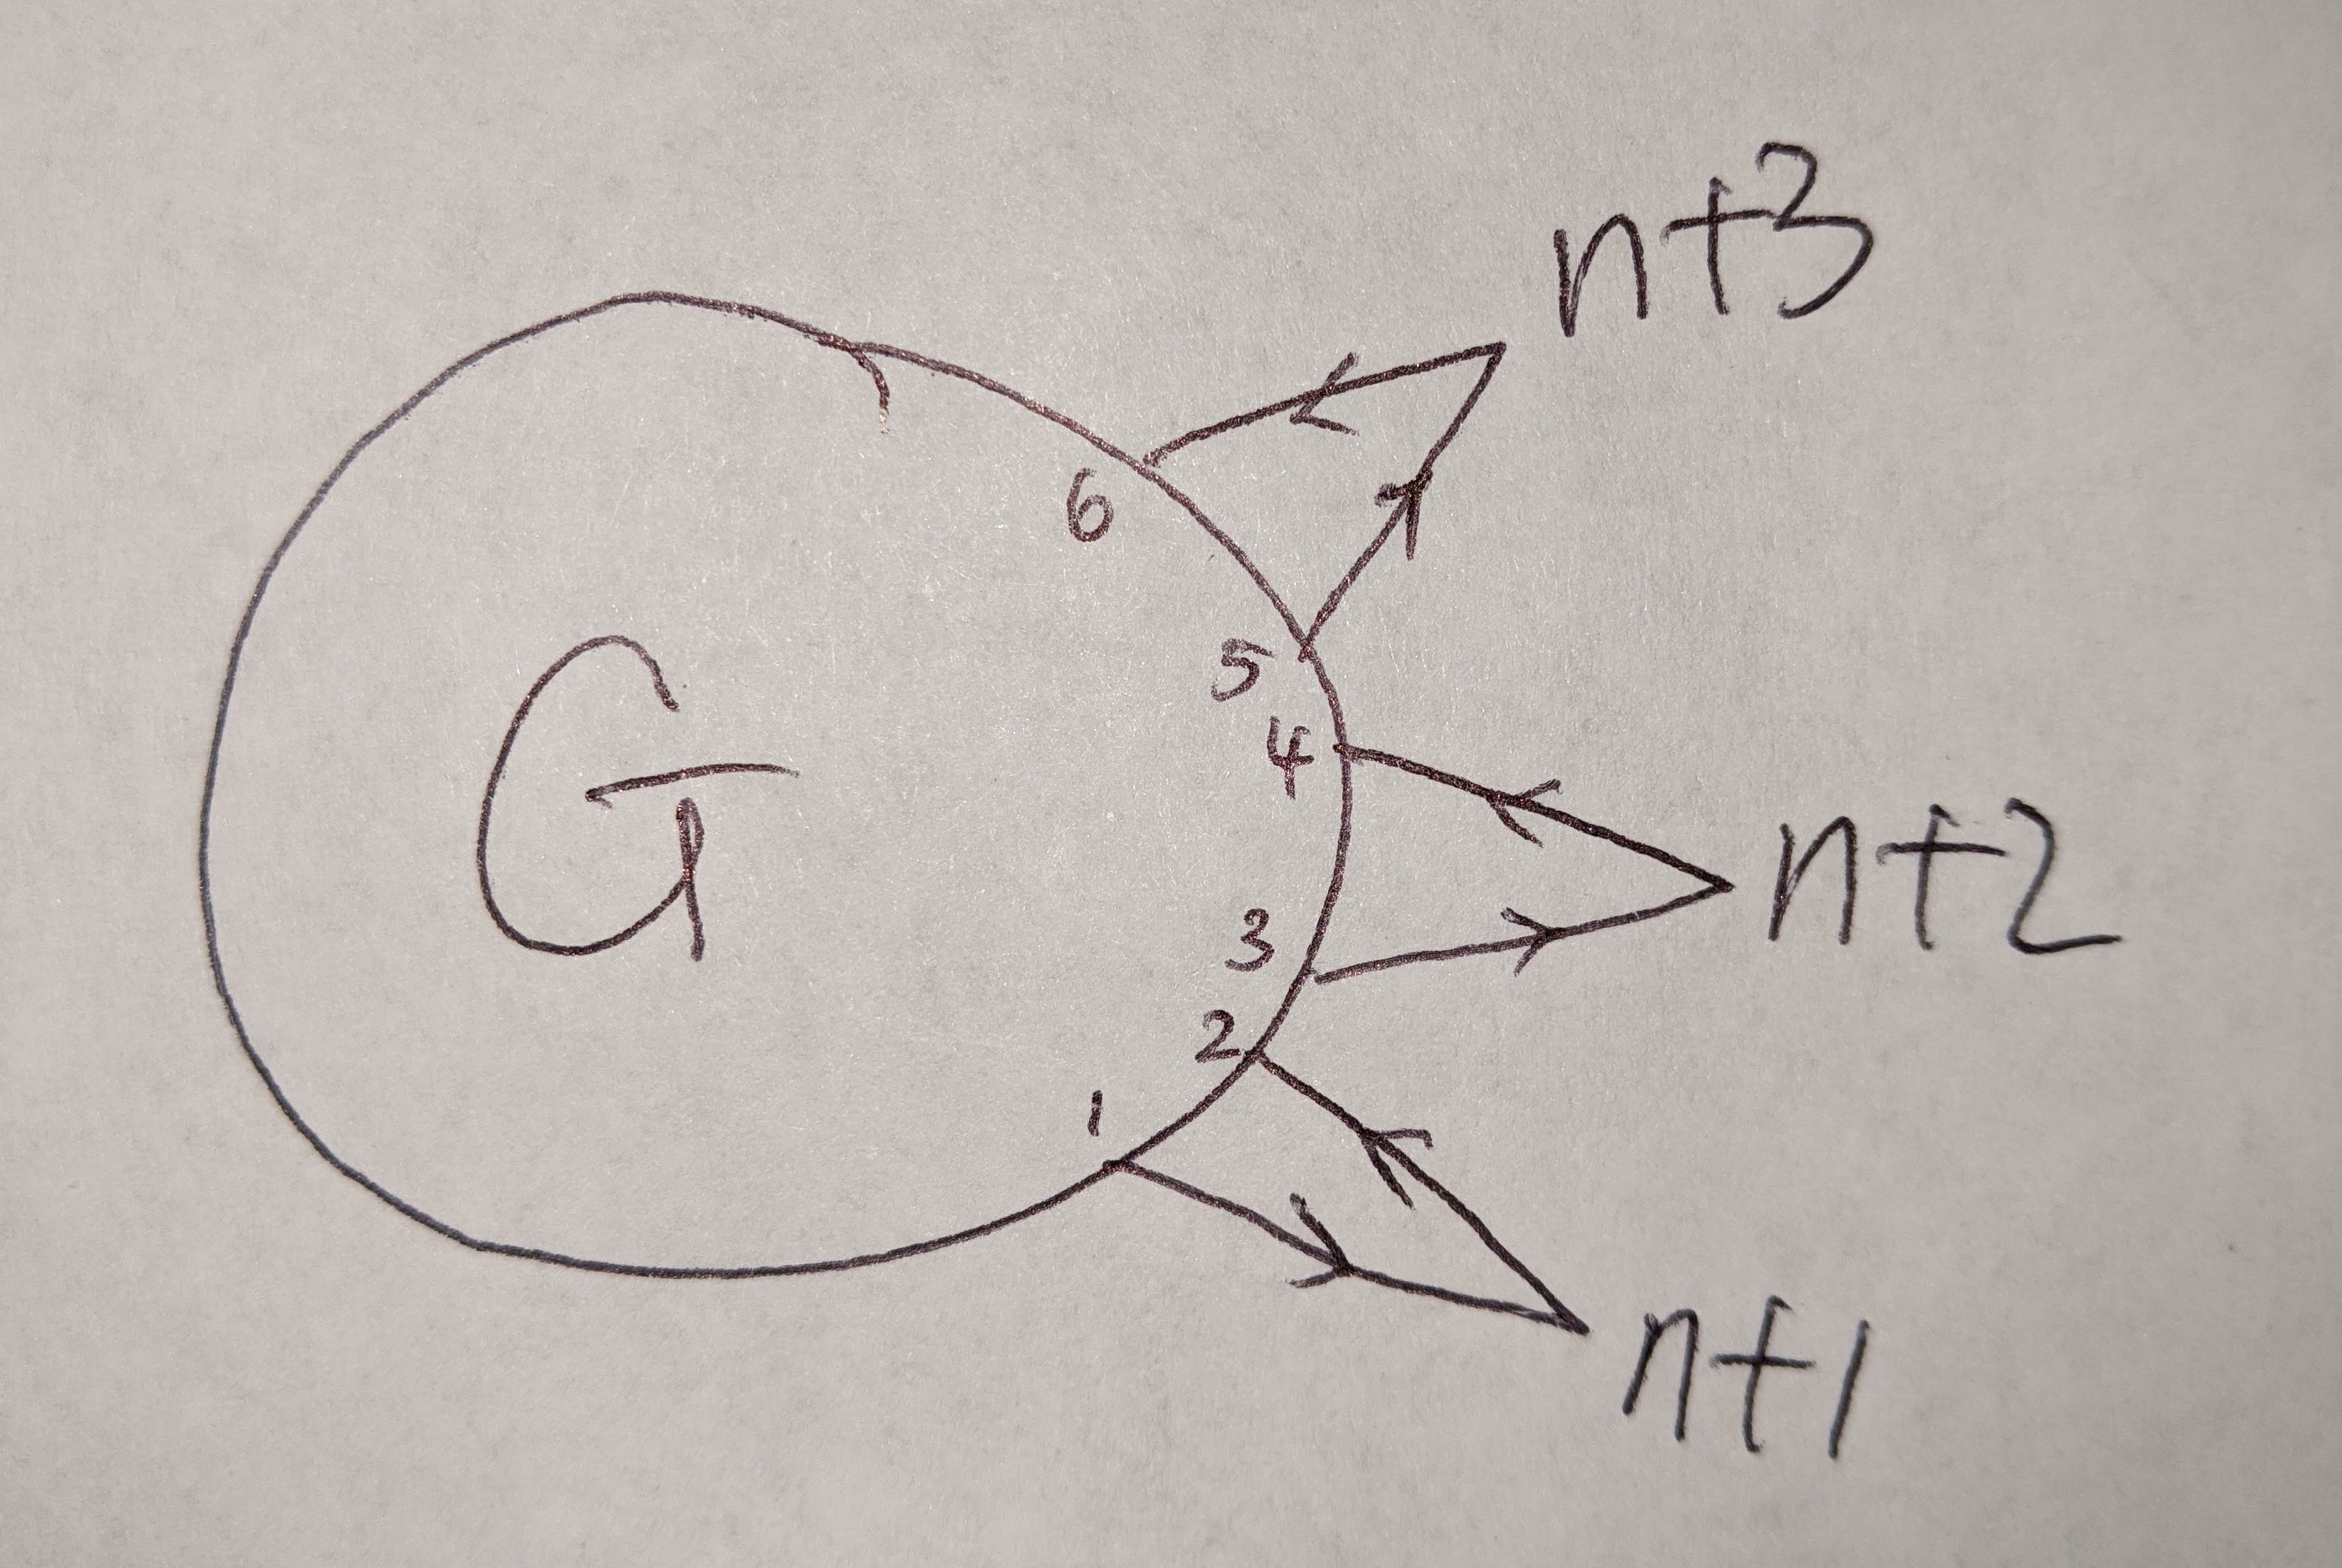 n+3
6
5
4
G
n+2
3
2
1
n+1